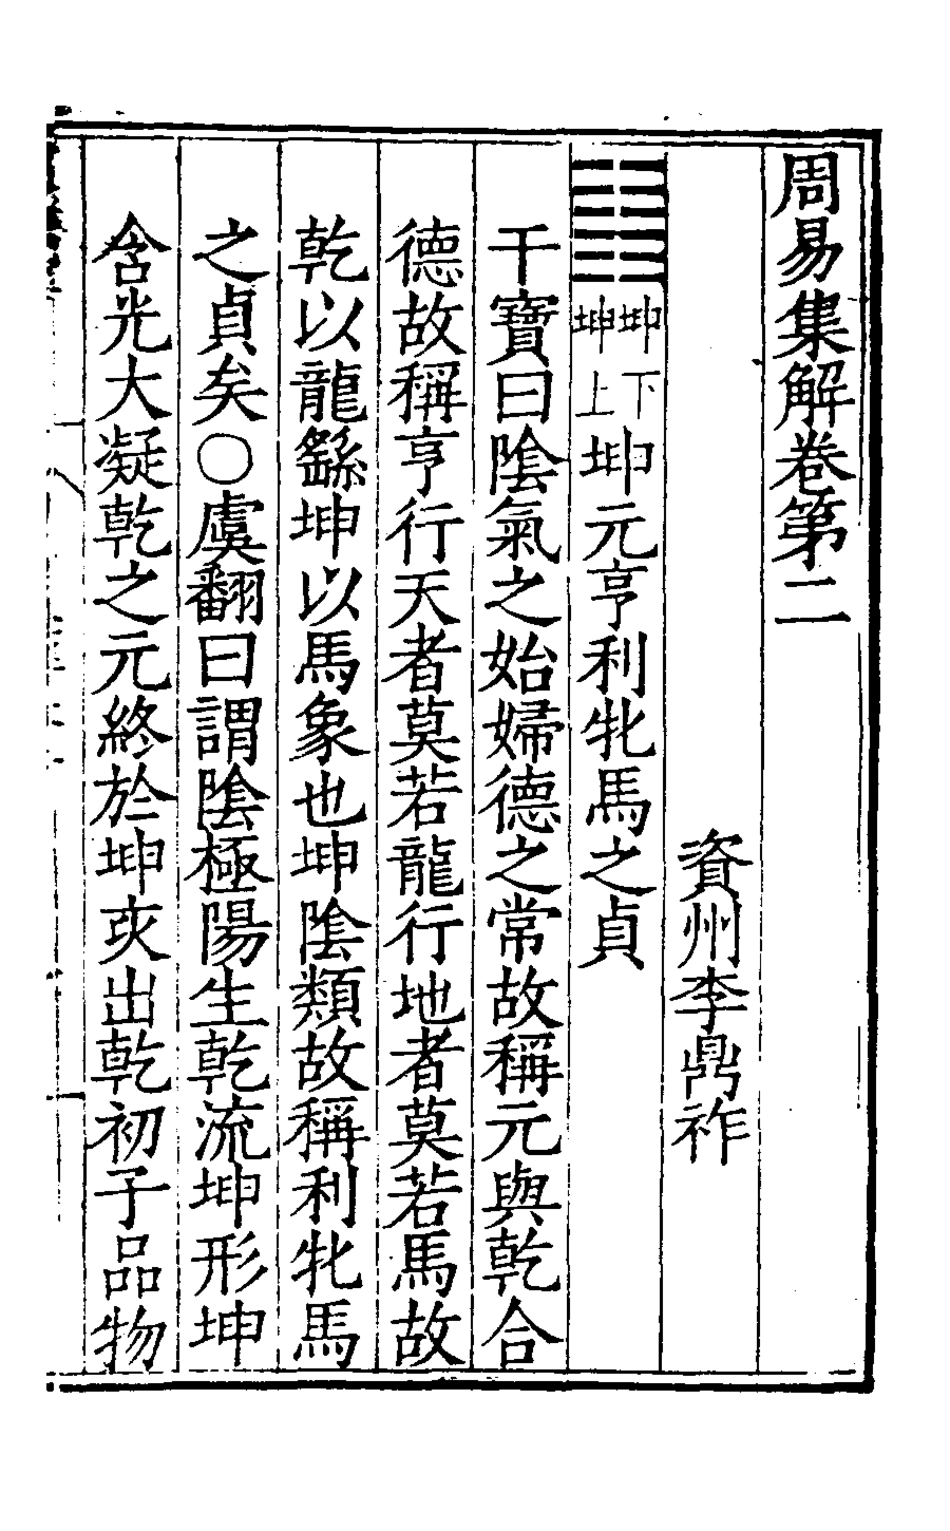 周易集解卷第二
資州李鼎祚
䷁坤下坤上坤元亨利牝馬之貞
干寶曰陰氣之始婦德之常故稱元與乾合
德故稱亨行天者莫若龍行地者莫若馬故
乾以龍繇坤以馬象也坤陰類故稱利牝馬
之貞矣○虞翻曰謂陰極陽生乾流坤形坤
含光大凝乾之元終於坤亥出乾初子品物